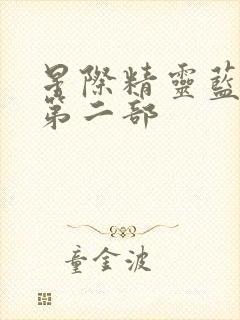 星際精靈藍
第二部
童金波